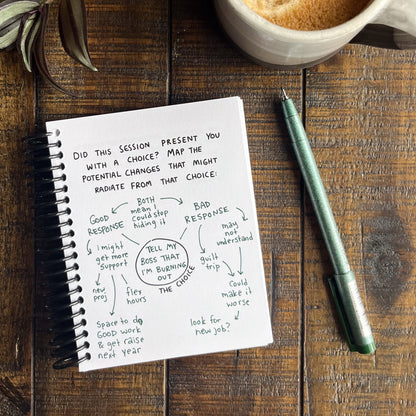 DID THIS SESSION PRESENT YOU
WITH A CHOICE? MAP THE
POTENTIAL CHANGES THAT MIGHT
RADIATE FROM THAT CHOICE:
BOTH
mean I
Could stop
hiding it
GOOD
RESPONSE
BAD
RESPONSE
i might
get more
support
TELL MY
BOSS THAT
I'M BURNING
OUT
THE CHOICE
may
not
understand
guilt
trip
new
proj
flex
hours
Could
make it
worse
Space to do
GOOD work
& get raise
next year
look for
new job?